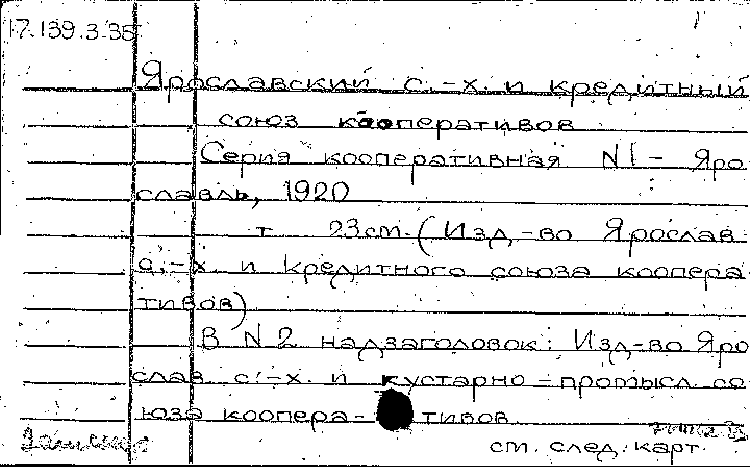 17.139.3.35
Ярославский с.-х. и кредитный
союз кооперативов
Серия кооперативная N1 – Яро
славль, 1920
т 23 см. (Изд-во Ярослав.
с.-х. и кредитного союза коопера
тивов)
В N2 надзаголовок: Изд-во Яро
слав с.-х. и кустарно-промысл со
юза коопера-тивов
см. след. карт.